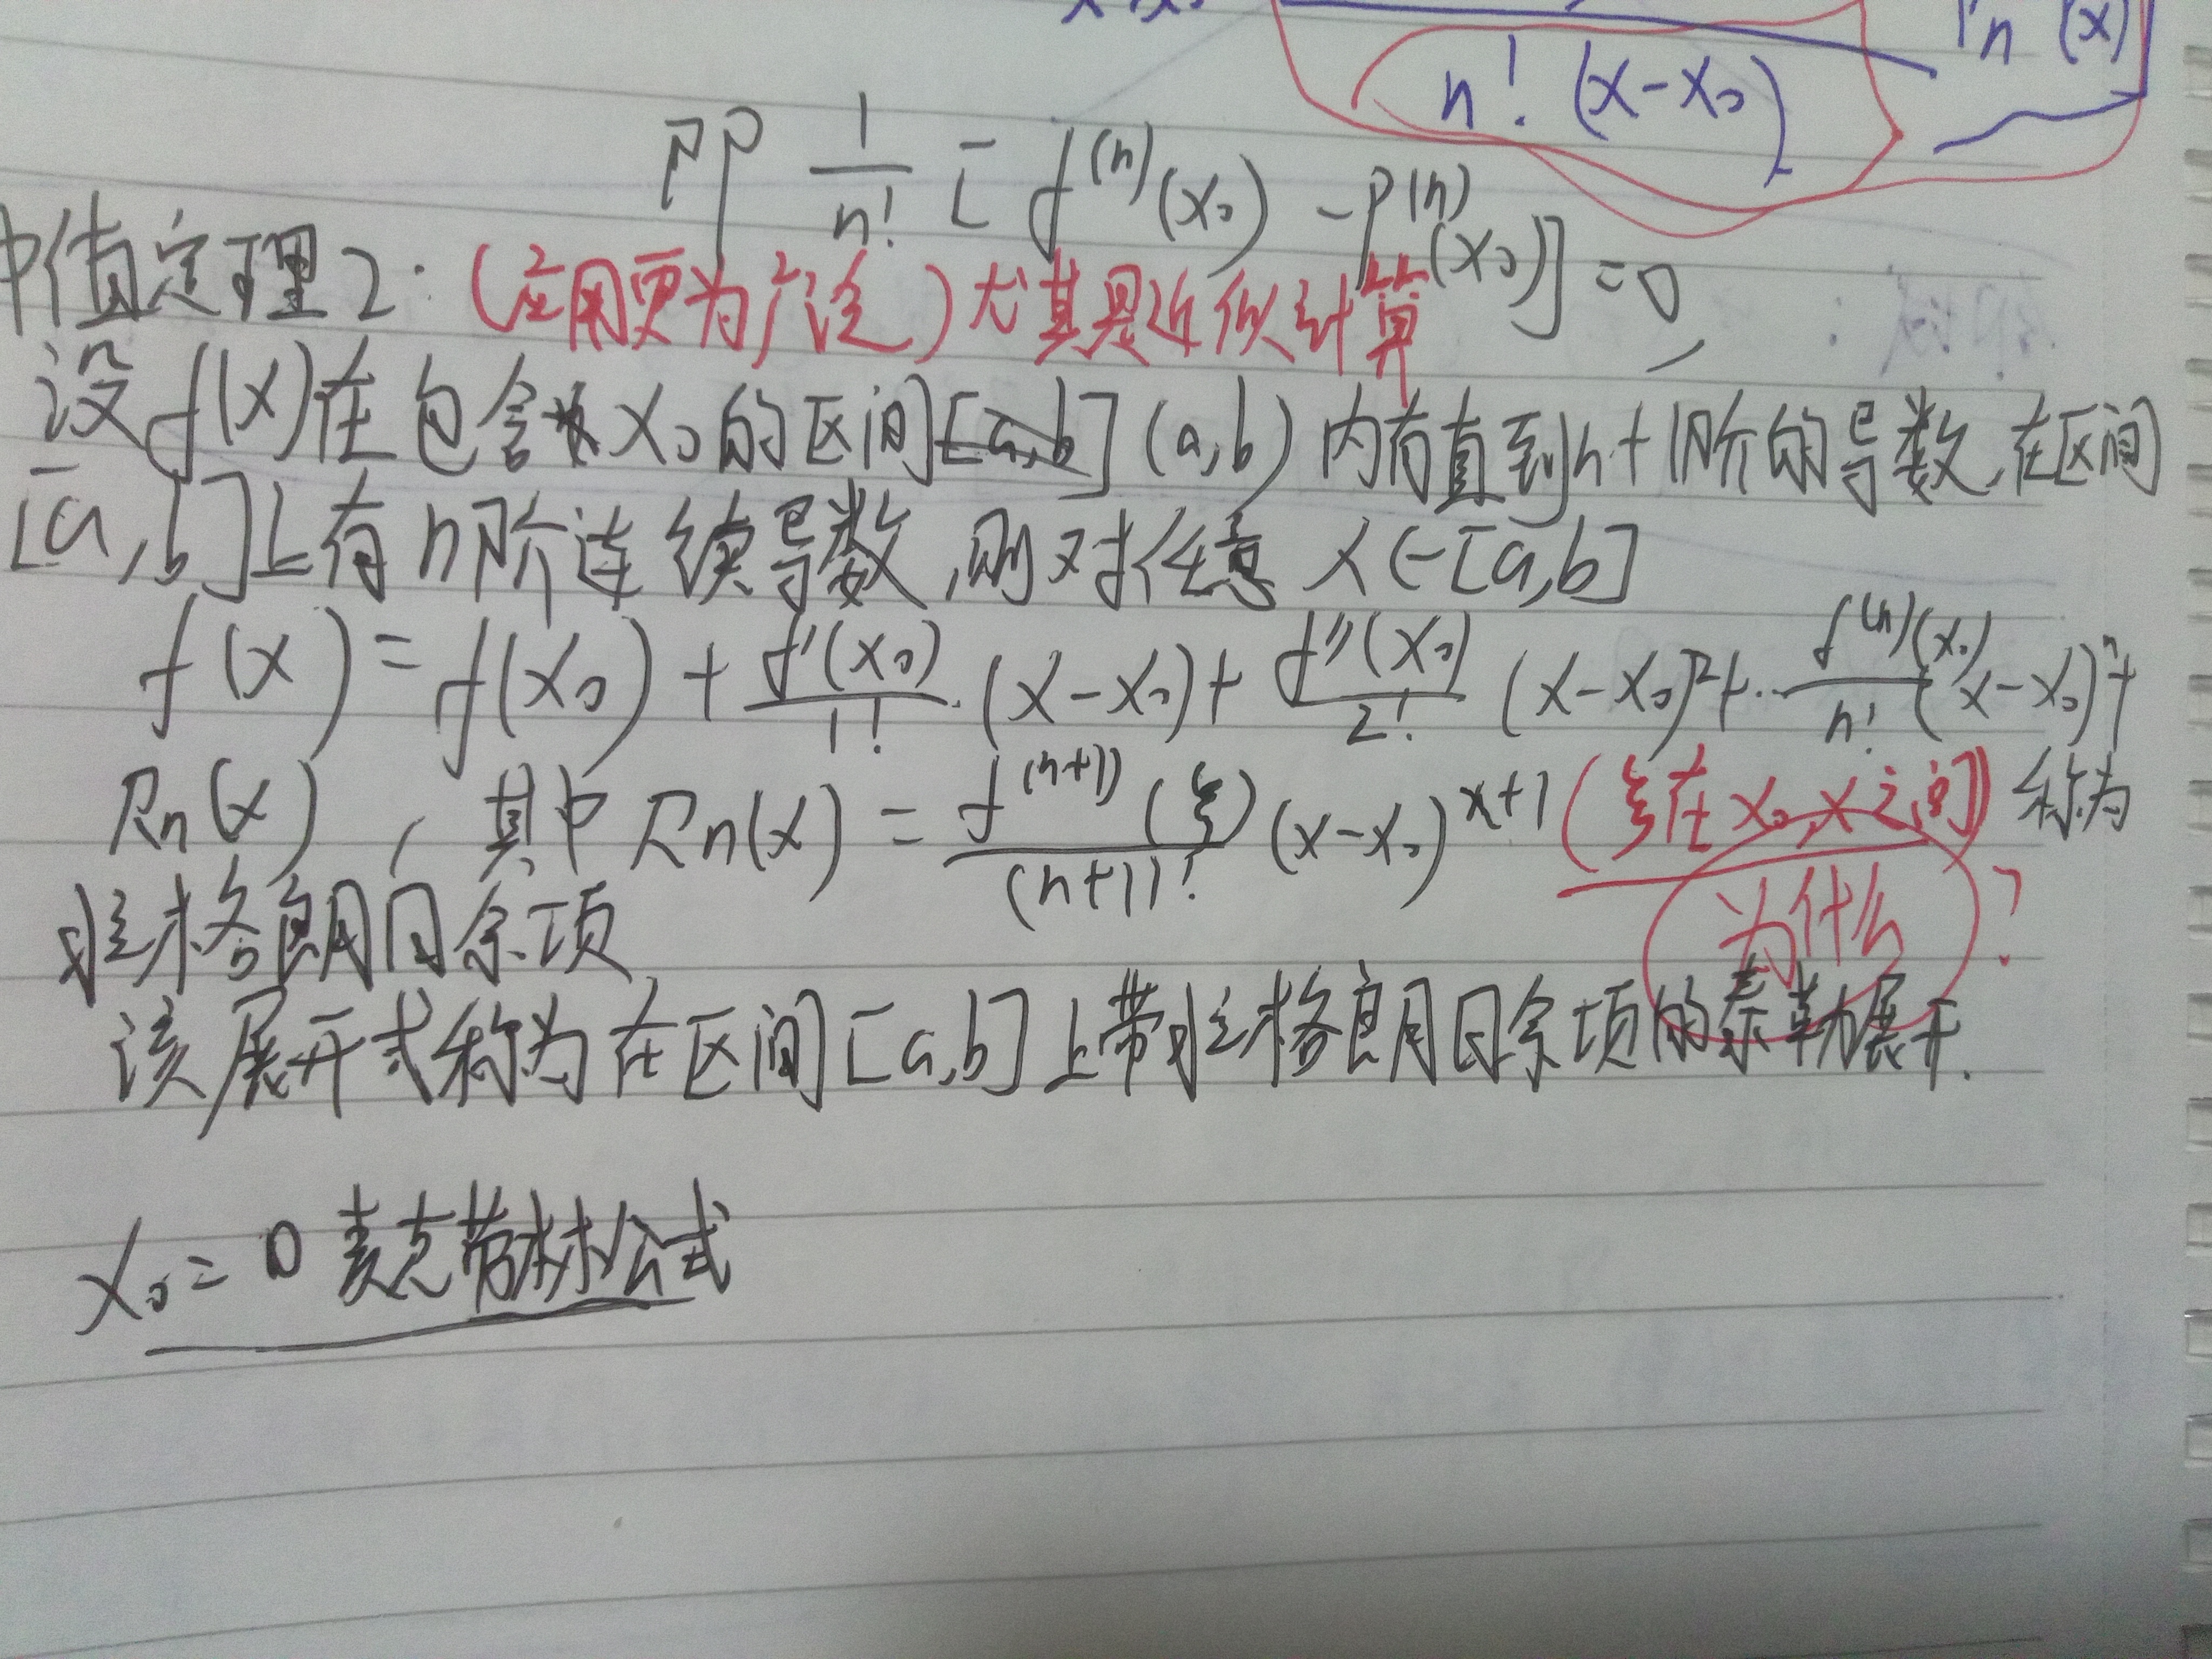 n! (x-x₀)
即 1/n! [f⁽ⁿ⁾(x₀) - P⁽ⁿ⁾(x₀)] = 0
中值定理2: (应用更为广泛) 尤其是近似计算
设f(x)在包含x₀的区间[a,b](a,b)内有直到n+1阶的导数,在区间
[a,b]上有n阶连续导数,则对任意x∈[a,b]
f(x) = f(x₀) + f'(x₀)/1! · (x-x₀) + f''(x₀)/2! (x-x₀)² + ·· f⁽ⁿ⁾(x₀)/n! (x-x₀)ⁿ +
Rn(x), 其中 Rn(x) = f⁽ⁿ⁺¹⁾(ξ)/(n+1)! (x-x₀)ˣ⁺¹ (ξ在x₀,x之间) 称为
为什么?
拉格朗日余项
该展开式称为在区间[a,b]上带拉格朗日余项的泰勒展开.
x₀=0 麦克劳林公式